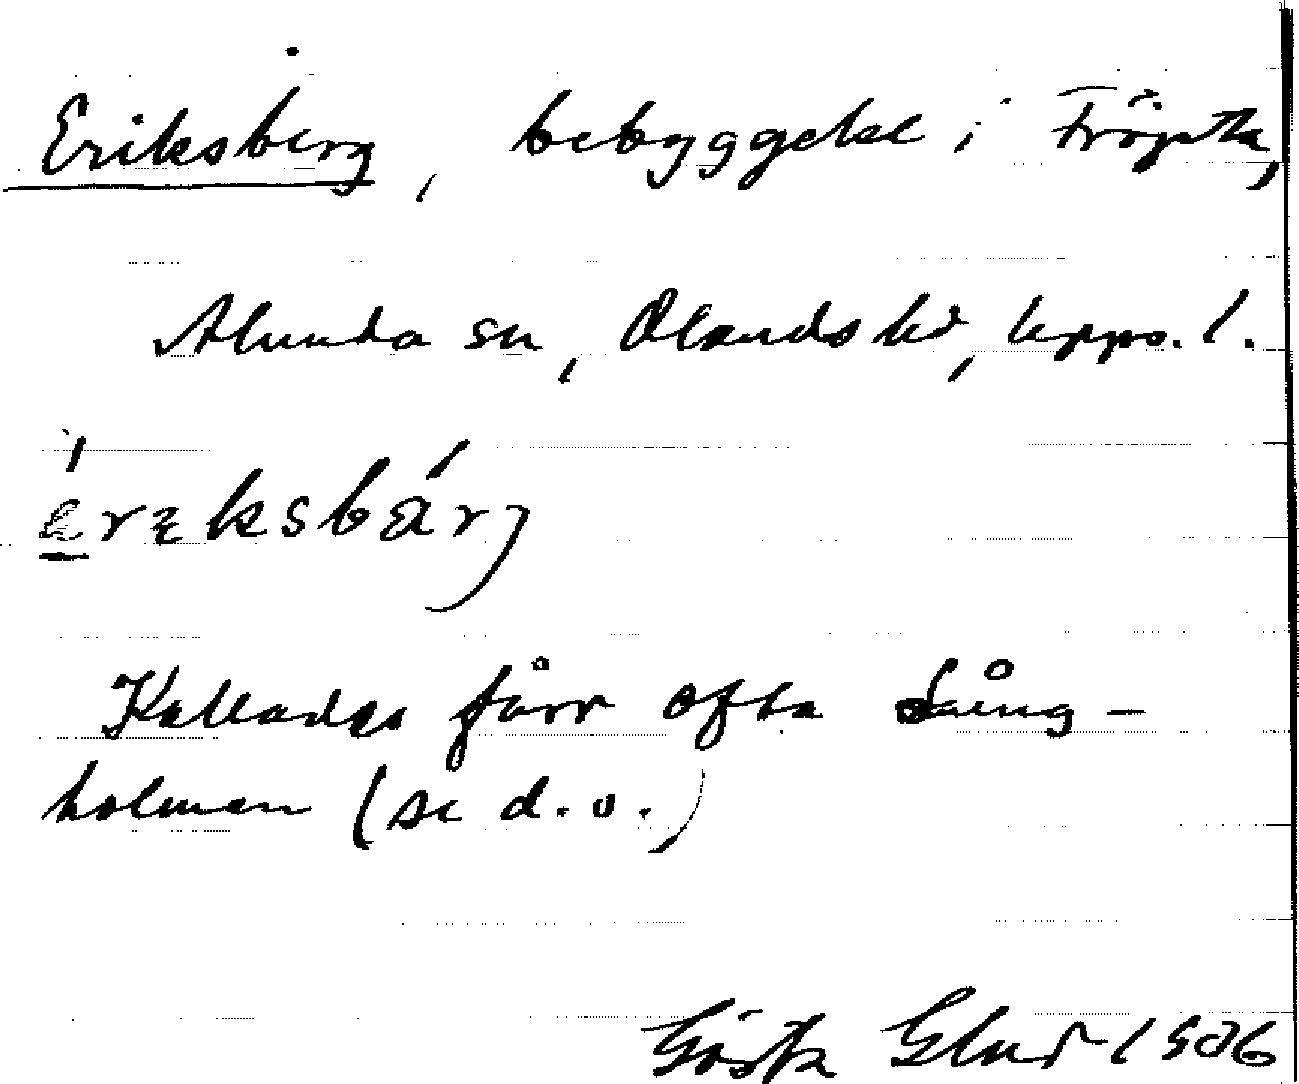 Eriksberg, bebyggelse i Fröjsta,
Alunda sn, Olands hd, Upps. l.
Kallades förr ofta Lång-
holmen (se d. o.)
Gösta